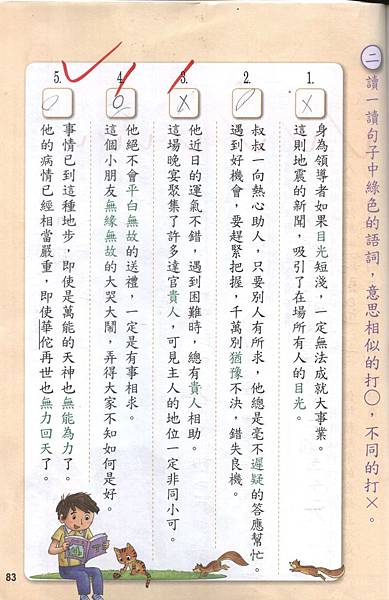 二 讀一讀句子中綠色的語詞，意思相似的打○，不同的打×。
1.
×
身為領導者如果目光短淺，一定無法成就大事業。
這則地震的新聞，吸引了在場所有人的目光。
2.
○
叔叔一向熱心助人，只要別人有所求，他總是毫不遲疑的答應幫忙。
遇到好機會，要趕緊把握，千萬別猶豫不決，錯失良機。
3.
×
他近日的運氣不錯，遇到困難時，總有貴人相助。
這場晚宴聚集了許多達官貴人，可見主人的地位一定非同小可。
4.
○
他絕不會平白無故的送禮，一定是有事相求。
這個小朋友無緣無故的大哭大鬧，弄得大家不知如何是好。
5.
○
事情已到這種地步，即使是萬能的天神也無能為力了。
他的病情已經相當嚴重，即使華佗再世也無力回天了。
83